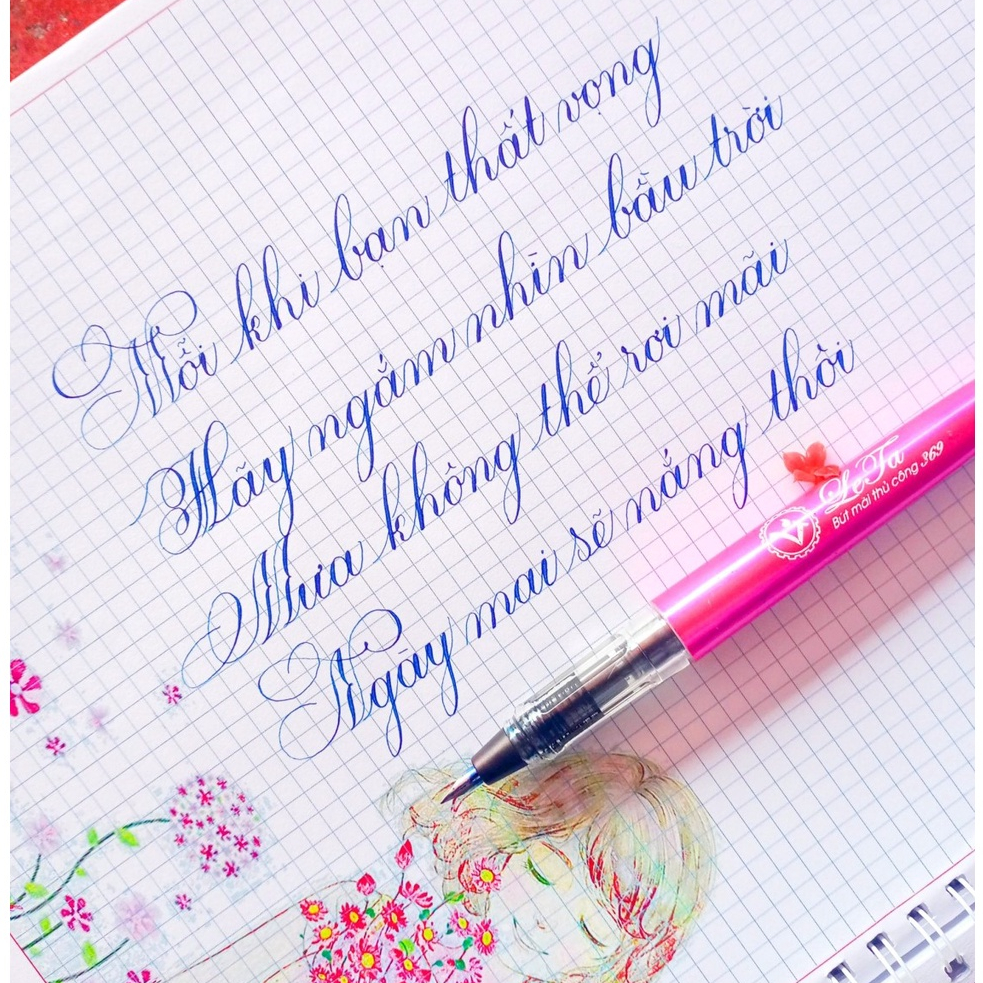 Mỗi khi bạn thất vọng
Hãy ngắm nhìn bầu trời
Mưa không thể rơi mãi
Ngày mai sẽ nắng thôi
LeTa
Bút mài thủ công 369